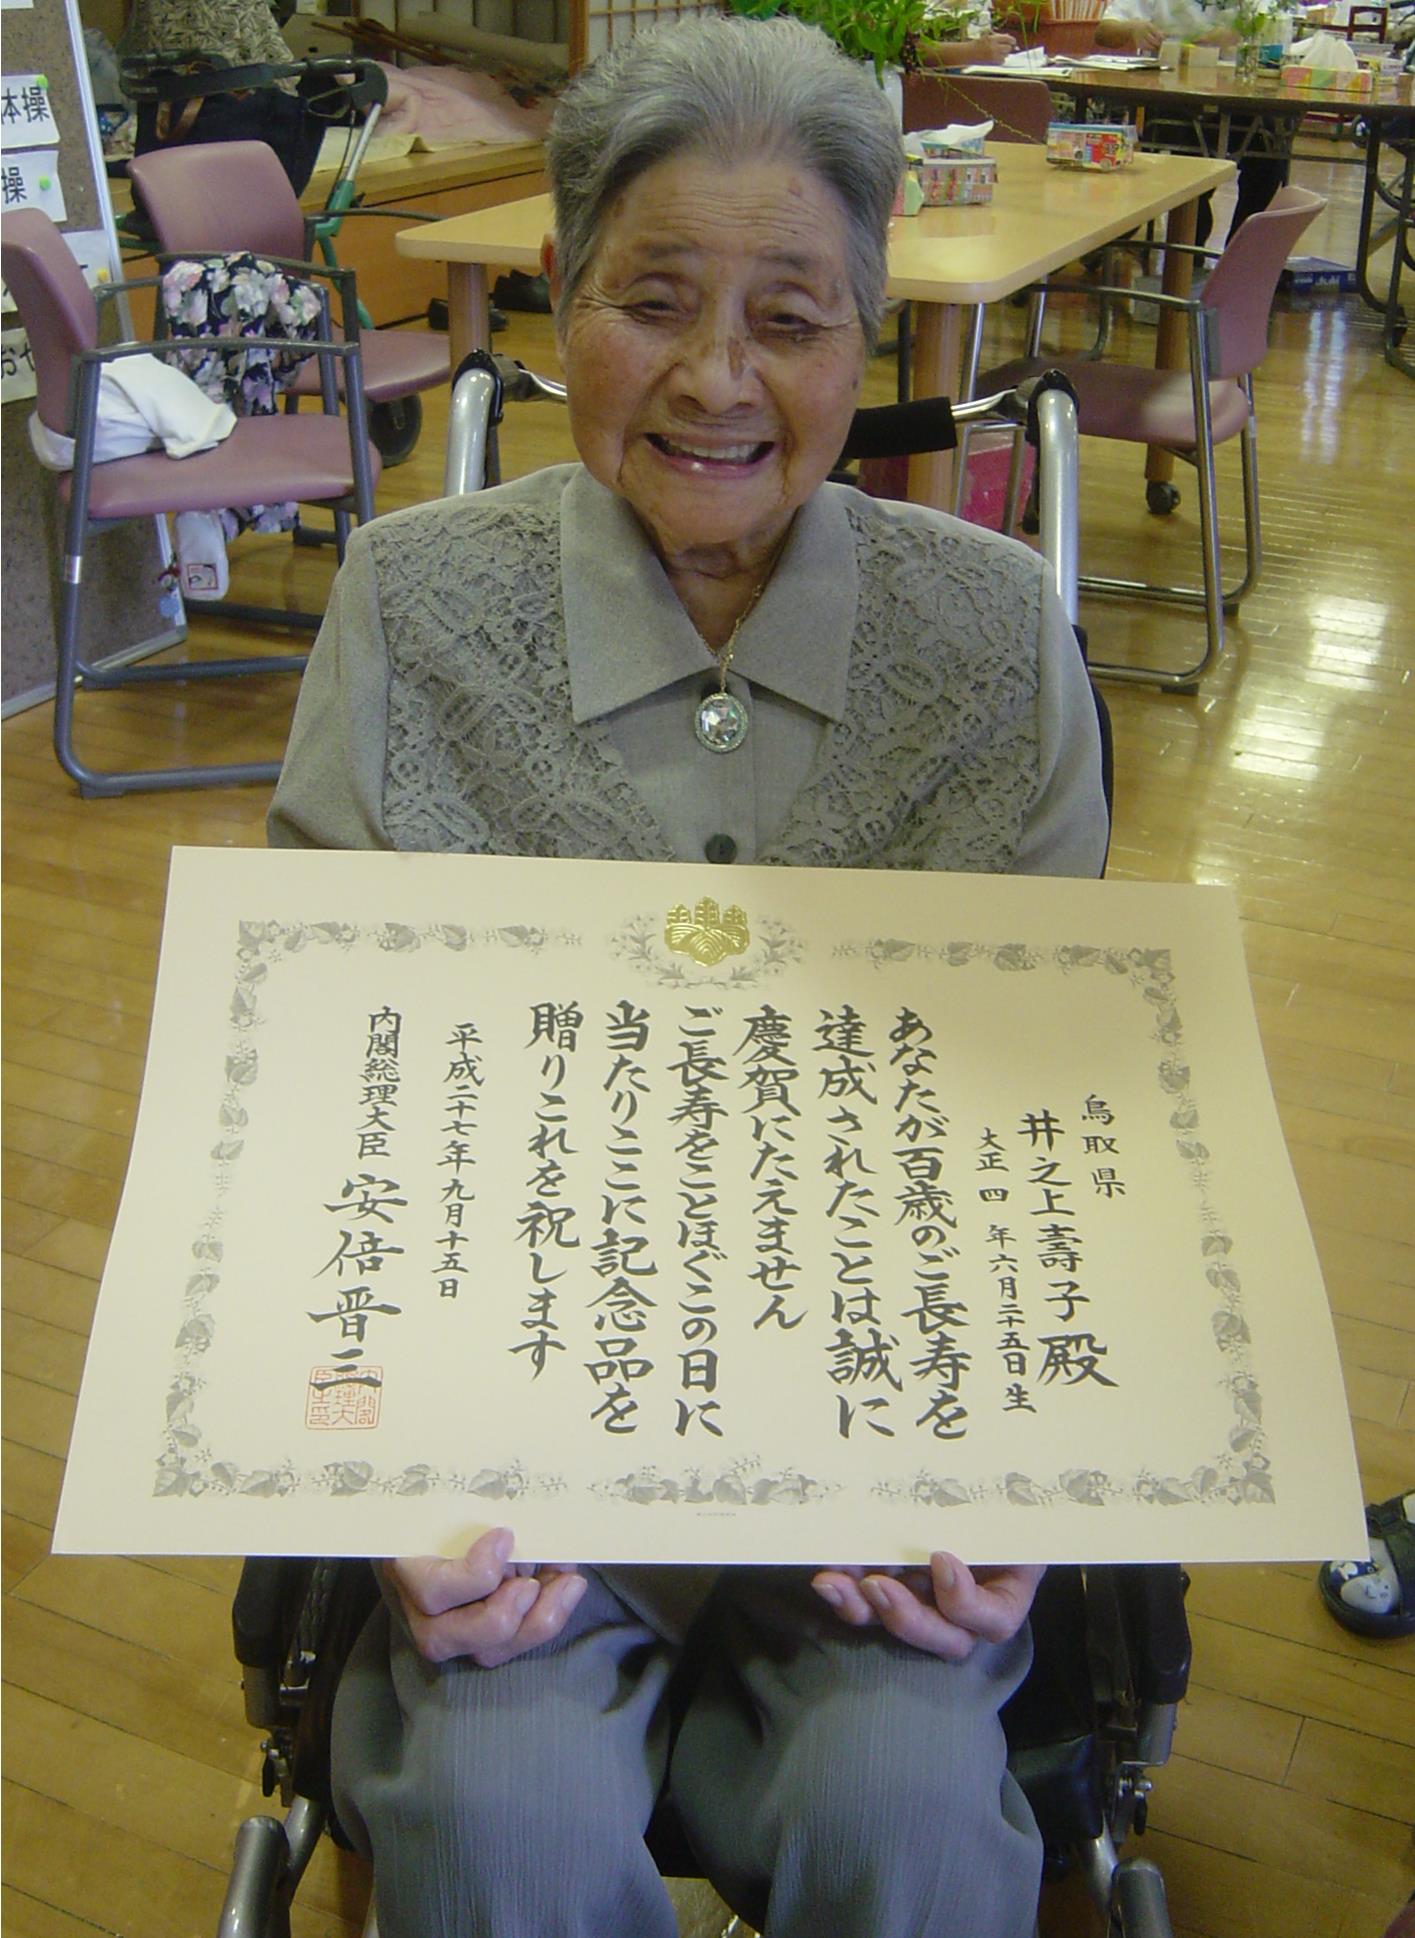 本操
操
おや
鳥取県
井之上壽子殿
大正四年六月二十五日生
あなたが百歳のご長寿を
達成されたことは誠に
慶賀にたえません
ご長寿をことほぐこの日に
当たりここに記念品を
贈りこれを祝します
平成二十七年九月十五日
内閣総理大臣 安倍晋三
内閣総理大臣之印